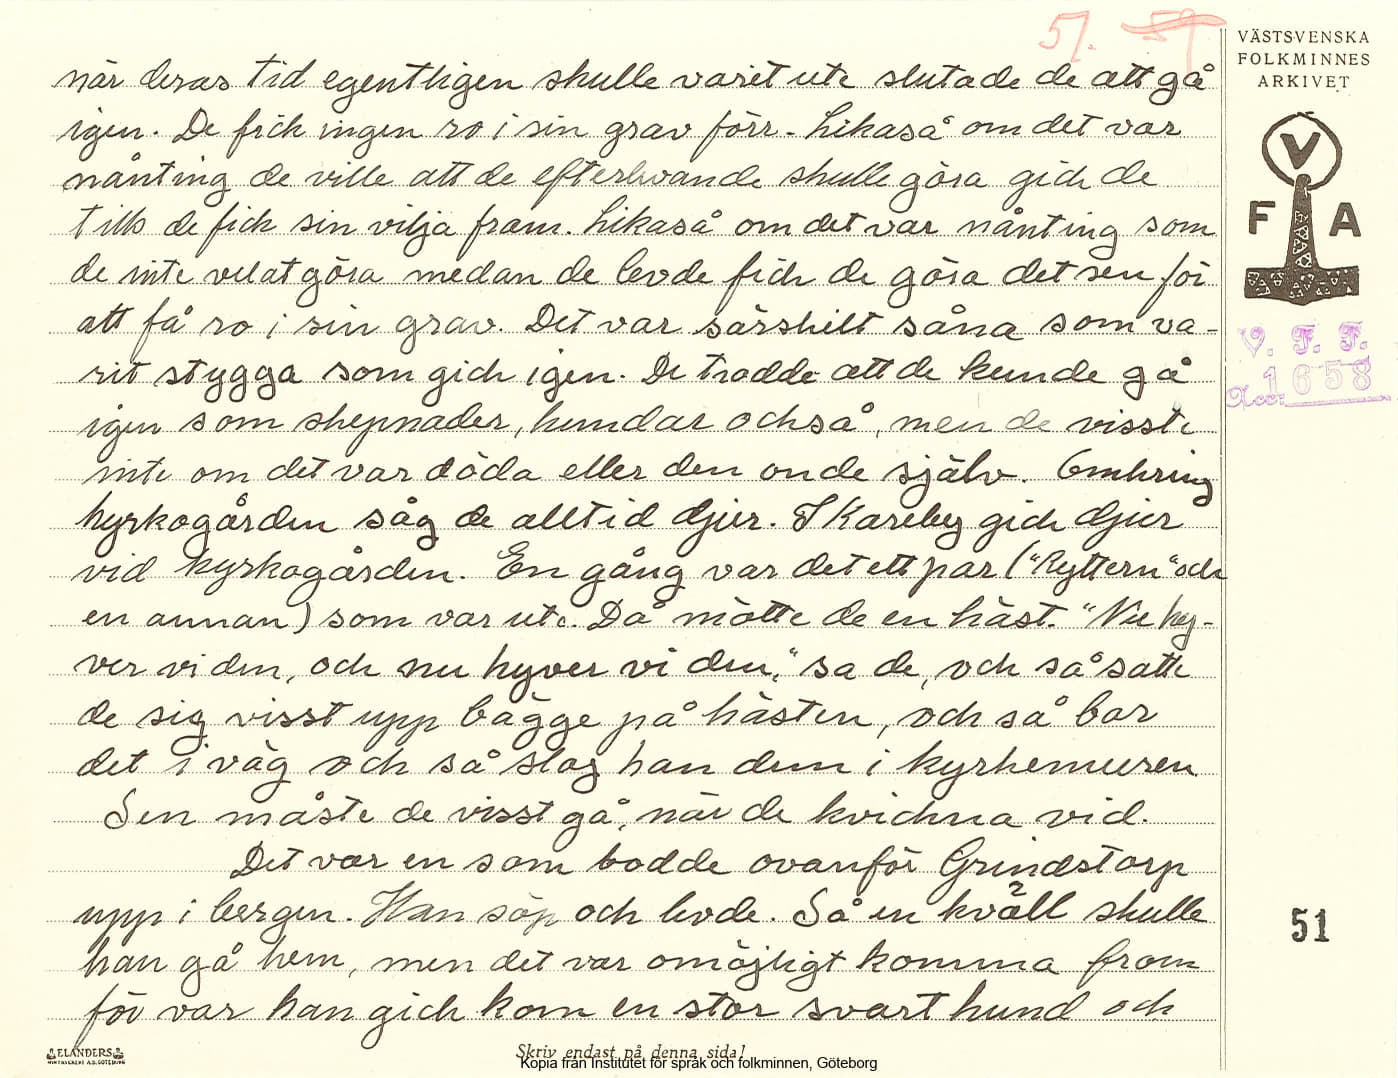 51. 59
VÄSTSVENSKA
FOLKMINNES
ARKIVET
V
F A
V. F. F.
Acc: 1658
när deras tid egentligen skulle varit ute slutade de att gå
igen. De fick ingen ro i sin grav förr. Likaså om det var
nånting de ville att de efterlevande skulle göra gick de
tills de fick sin vilja fram. Likaså om det var nånting som
de inte velat göra medan de levde fick de göra det sen för
att få ro i sin grav. Det var särskilt såna som va-
rit stygga som gick igen. De trodde att de kunde gå
igen som skepnader, hundar också, men de visste
inte om det var döda eller den onde själv. Omkring
kyrkogården såg de alltid djur. I Kareby gick djur
vid kyrkogården. En gång var det ett par ("Ryttern" och
en annan) som var ute. Då mötte de en häst. "Nu ky-
ver vi den, och nu kyver vi den," sa de, och så satte
de sig visst upp bägge på hästen, och så bar
det i väg och så slog han dem i kyrkemuren
Sen måste de visst gå, när de kvickna vid.
Det var en som bodde ovanför Grindstorp
upp i bergen. Han söp och levde. Så en kväll skulle
han gå hem, men det var omöjligt komma fram
för var han gick kom en stor svart hund och
51
ELANDERS
Skriv endast på denna sida!
Kopia från Institutet för språk och folkminnen, Göteborg